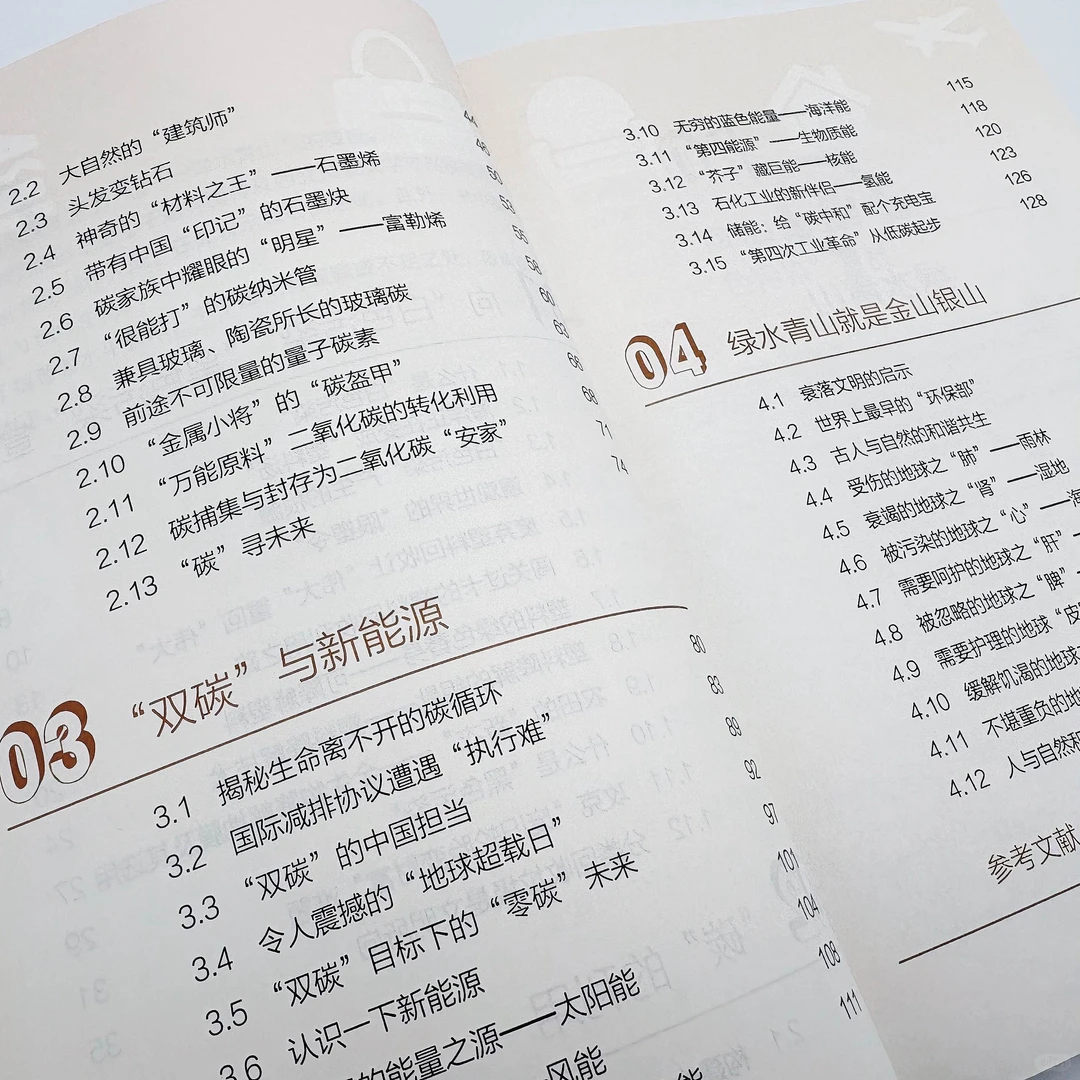 2.2 大自然的“建筑师”
2.3 头发变钻石
2.4 神奇的“材料之王”——石墨烯 50
2.5 带有中国“印记”的石墨炔 53
2.6 碳家族中耀眼的“明星”——富勒烯
2.7 “很能打”的碳纳米管
2.8 兼具玻璃、陶瓷所长的玻璃碳 60
2.9 前途不可限量的量子碳素 63
2.10 “金属小将”的“碳盔甲” 66
2.11 “万能原料”二氧化碳的转化利用 68
2.12 碳捕集与封存为二氧化碳“安家” 71
2.13 “碳”寻未来 74
03 “双碳”与新能源
3.1 揭秘生命离不开的碳循环 80
3.2 国际减排协议遭遇“执行难” 83
3.3 “双碳”的中国担当 89
3.4 令人震撼的“地球超载日” 92
3.5 “双碳”目标下的“零碳”未来 97
3.6 认识一下新能源 101
的能量之源——太阳能 104
风能 108
能 111
3.10 无穷的蓝色能量——海洋能 115
3.11 “第四能源”——生物质能 118
3.12 “芥子”藏巨能——核能 120
3.13 石化工业的新伴侣——氢能 123
3.14 储能：给“碳中和”配个充电宝 126
3.15 “第四次工业革命”从低碳起步 128
04 绿水青山就是金山银山
4.1 衰落文明的启示
4.2 世界上最早的“环保部”
4.3 古人与自然的和谐共生
4.4 受伤的地球之“肺”——雨林
4.5 衰竭的地球之“肾”——湿地
4.6 被污染的地球之“心”——海
4.7 需要呵护的地球之“肝”—
4.8 被忽略的地球之“脾”—
4.9 需要护理的地球“皮
4.10 缓解饥渴的地球
4.11 不堪重负的地
4.12 人与自然和
参考文献